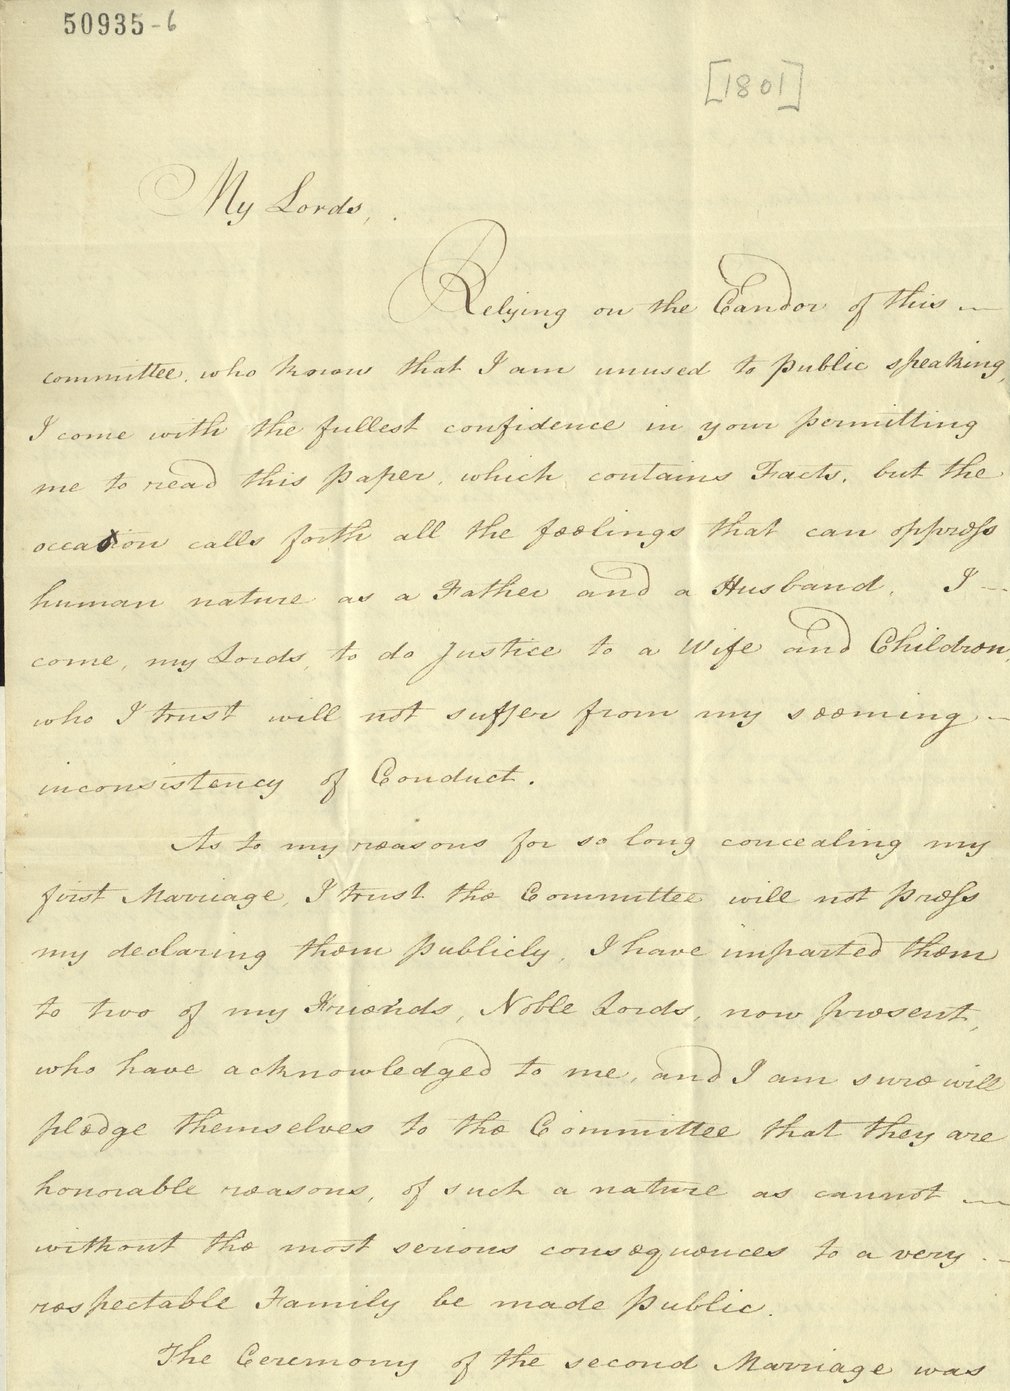 50935-6
[1801]
My Lords,
Relying on the Candor of this —
committee, who know that I am unused to public speaking,
I come with the fullest confidence in your permitting
me to read this paper, which contains Facts, but the
occasion calls forth all the feelings that can oppress
human nature as a Father and a Husband. I —
come, my Lords, to do Justice to a Wife and Children,
who I trust will not suffer from my seeming —
inconsistency of Conduct.
As to my reasons for so long concealing my
first Marriage, I trust the Committee will not press
my declaring them publicly, I have imparted them
to two of my Friends, Noble Lords, now present,
who have acknowledged to me, and I am sure will
pledge themselves to the Committee that they are
honorable reasons, of such a nature as cannot —
without the most serious consequences to a very —
respectable Family be made public.
The Ceremony of the second Marriage was